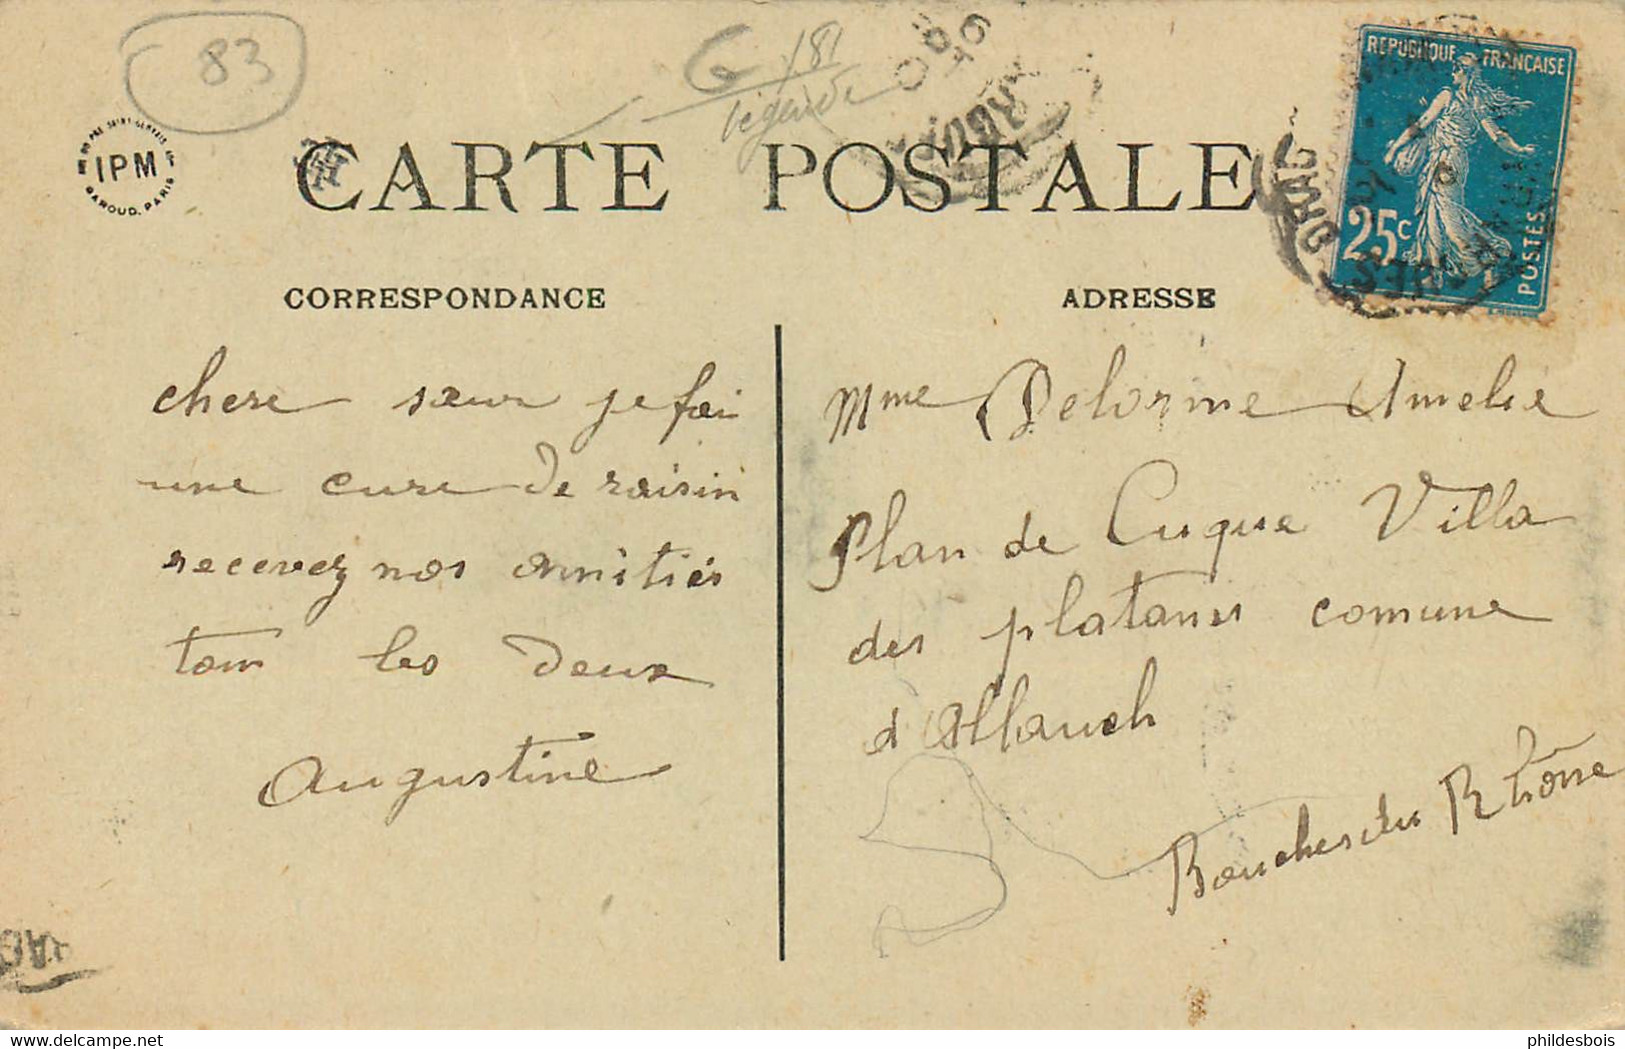 83
G 181
légende
IPM
BAROUD, PARIS
CARTE POSTALE
REPUBLIQUE FRANÇAISE
25c
POSTES
CORRESPONDANCE
ADRESSE
chere sœur je fai
une cure de raisin
recevez nos amitiés
tous les deux
Augustine
Mme Delorme Amelie
Plan de Cuque Villa
des platanes comune
d'Allauch
Bouches du Rhône
phildesbois